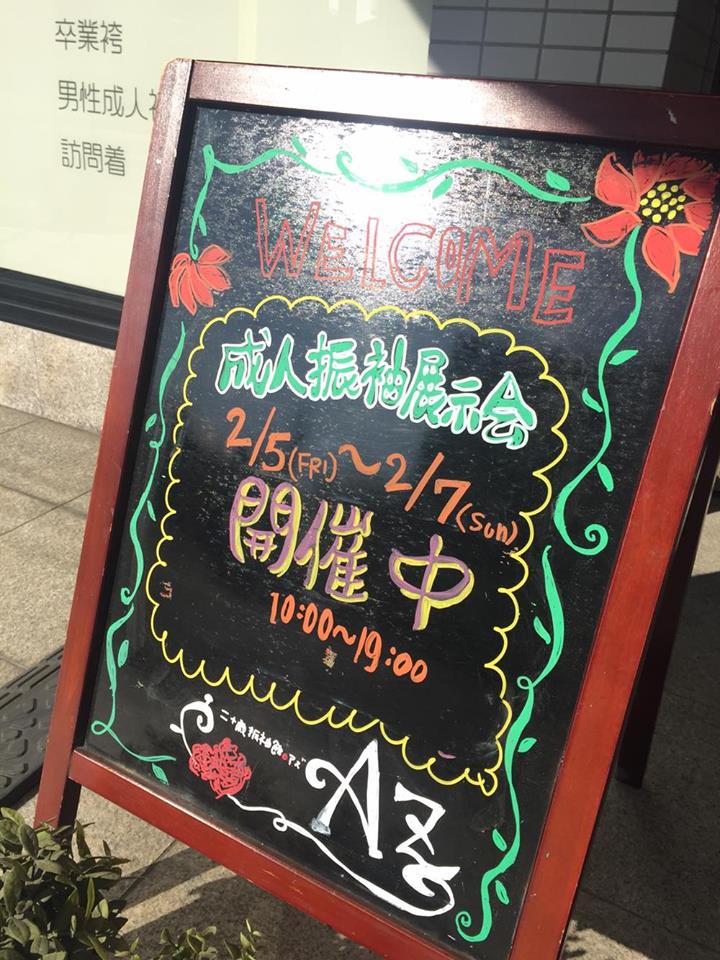 卒業袴
男性成人
訪問着
WELCOME
成人振袖展示会
2/5(FRI)～2/7(Sun)
開催中
10:00～19:00
二十歳振袖館●アズ
AZ